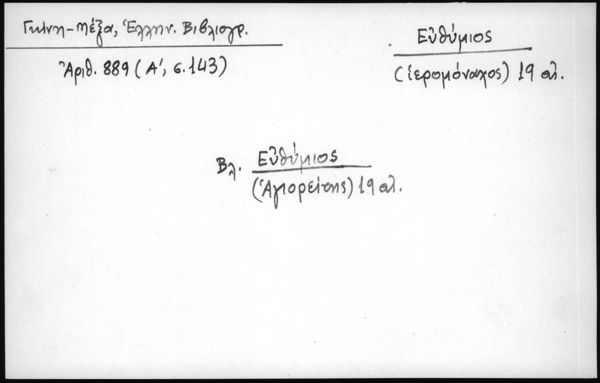 Γκίνη-Μέξα, Ἑλλην. Βιβλιογρ.
Ἀριθ. 889 (Α', σ. 143)
Εὐθύμιος
(ἱερομόναχος) 19 αἰ.
Βλ. Εὐθύμιος
(Ἁγιορείτης) 19 αἰ.